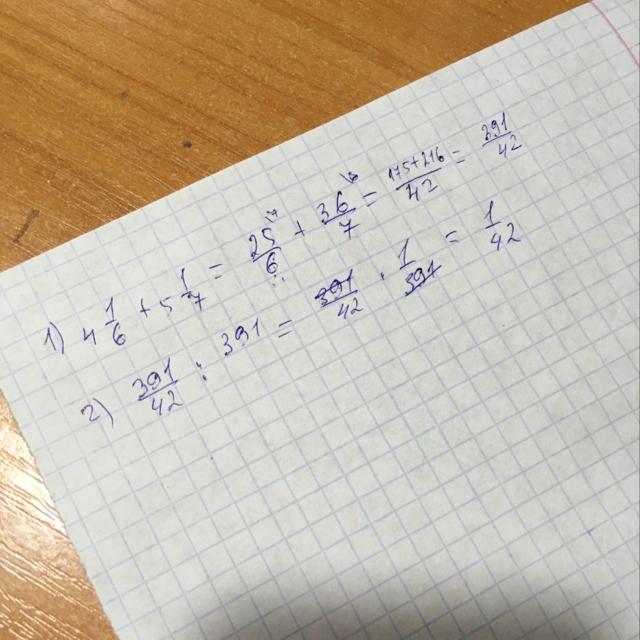 1) 4 1/6 + 5 1/7 = 25/6 \7 + 36/7 \6 = 175+216/42 = 391/42
2) 391/42 : 391 = 391/42 · 1/391 = 1/42